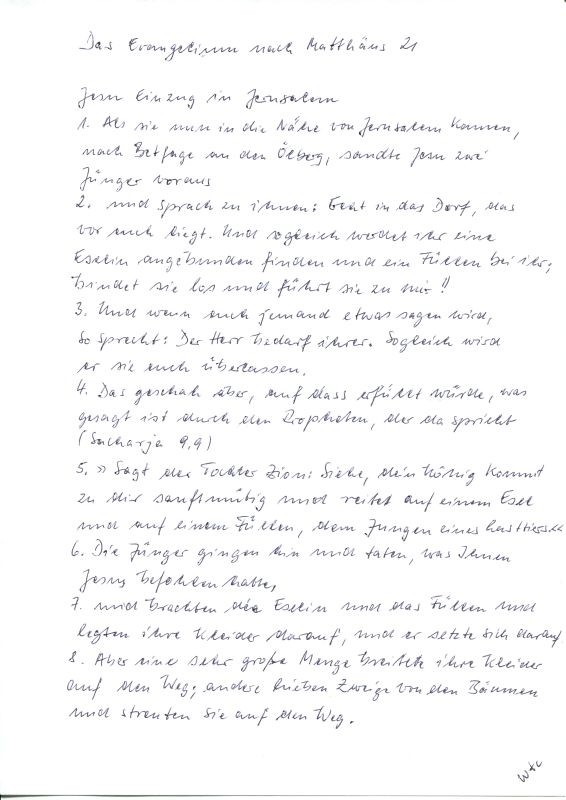 Das Evangelium nach Matthäus 21
Jesu Einzug in Jerusalem
1. Als sie nun in die Nähe von Jerusalem kamen,
nach Betfage an den Ölberg, sandte Jesu zwei
Jünger voraus
2. und sprach zu ihnen: Geht in das Dorf, das
vor euch liegt. Und sogleich werdet ihr eine
Eselin angebunden finden und ein Füllen bei ihr;
bindet sie los und führt sie zu mir!!
3. Und wenn euch jemand etwas sagen wird,
so sprecht: Der Herr bedarf ihrer. Sogleich wird
er sie euch überlassen.
4. Das geschah aber, auf dass erfüllt würde, was
gesagt ist durch den Propheten, der da spricht
(Sacharja 9,9)
5. »Sagt der Tochter Zion: Siehe, dein König kommt
zu dir sanftmütig und reitet auf einem Esel
und auf einem Füllen, dem Jungen eines Lasttiers«
6. Die Jünger gingen hin und taten, was Ihnen
Jesus befohlen hatte,
7. und brachten die Eselin und das Füllen und
legten ihre Kleider darauf, und er setzte sich darauf.
8. Aber eine sehr große Menge breitete ihre Kleider
auf den Weg; andere hieben Zweige von den Bäumen
und streuten Sie auf den Weg.